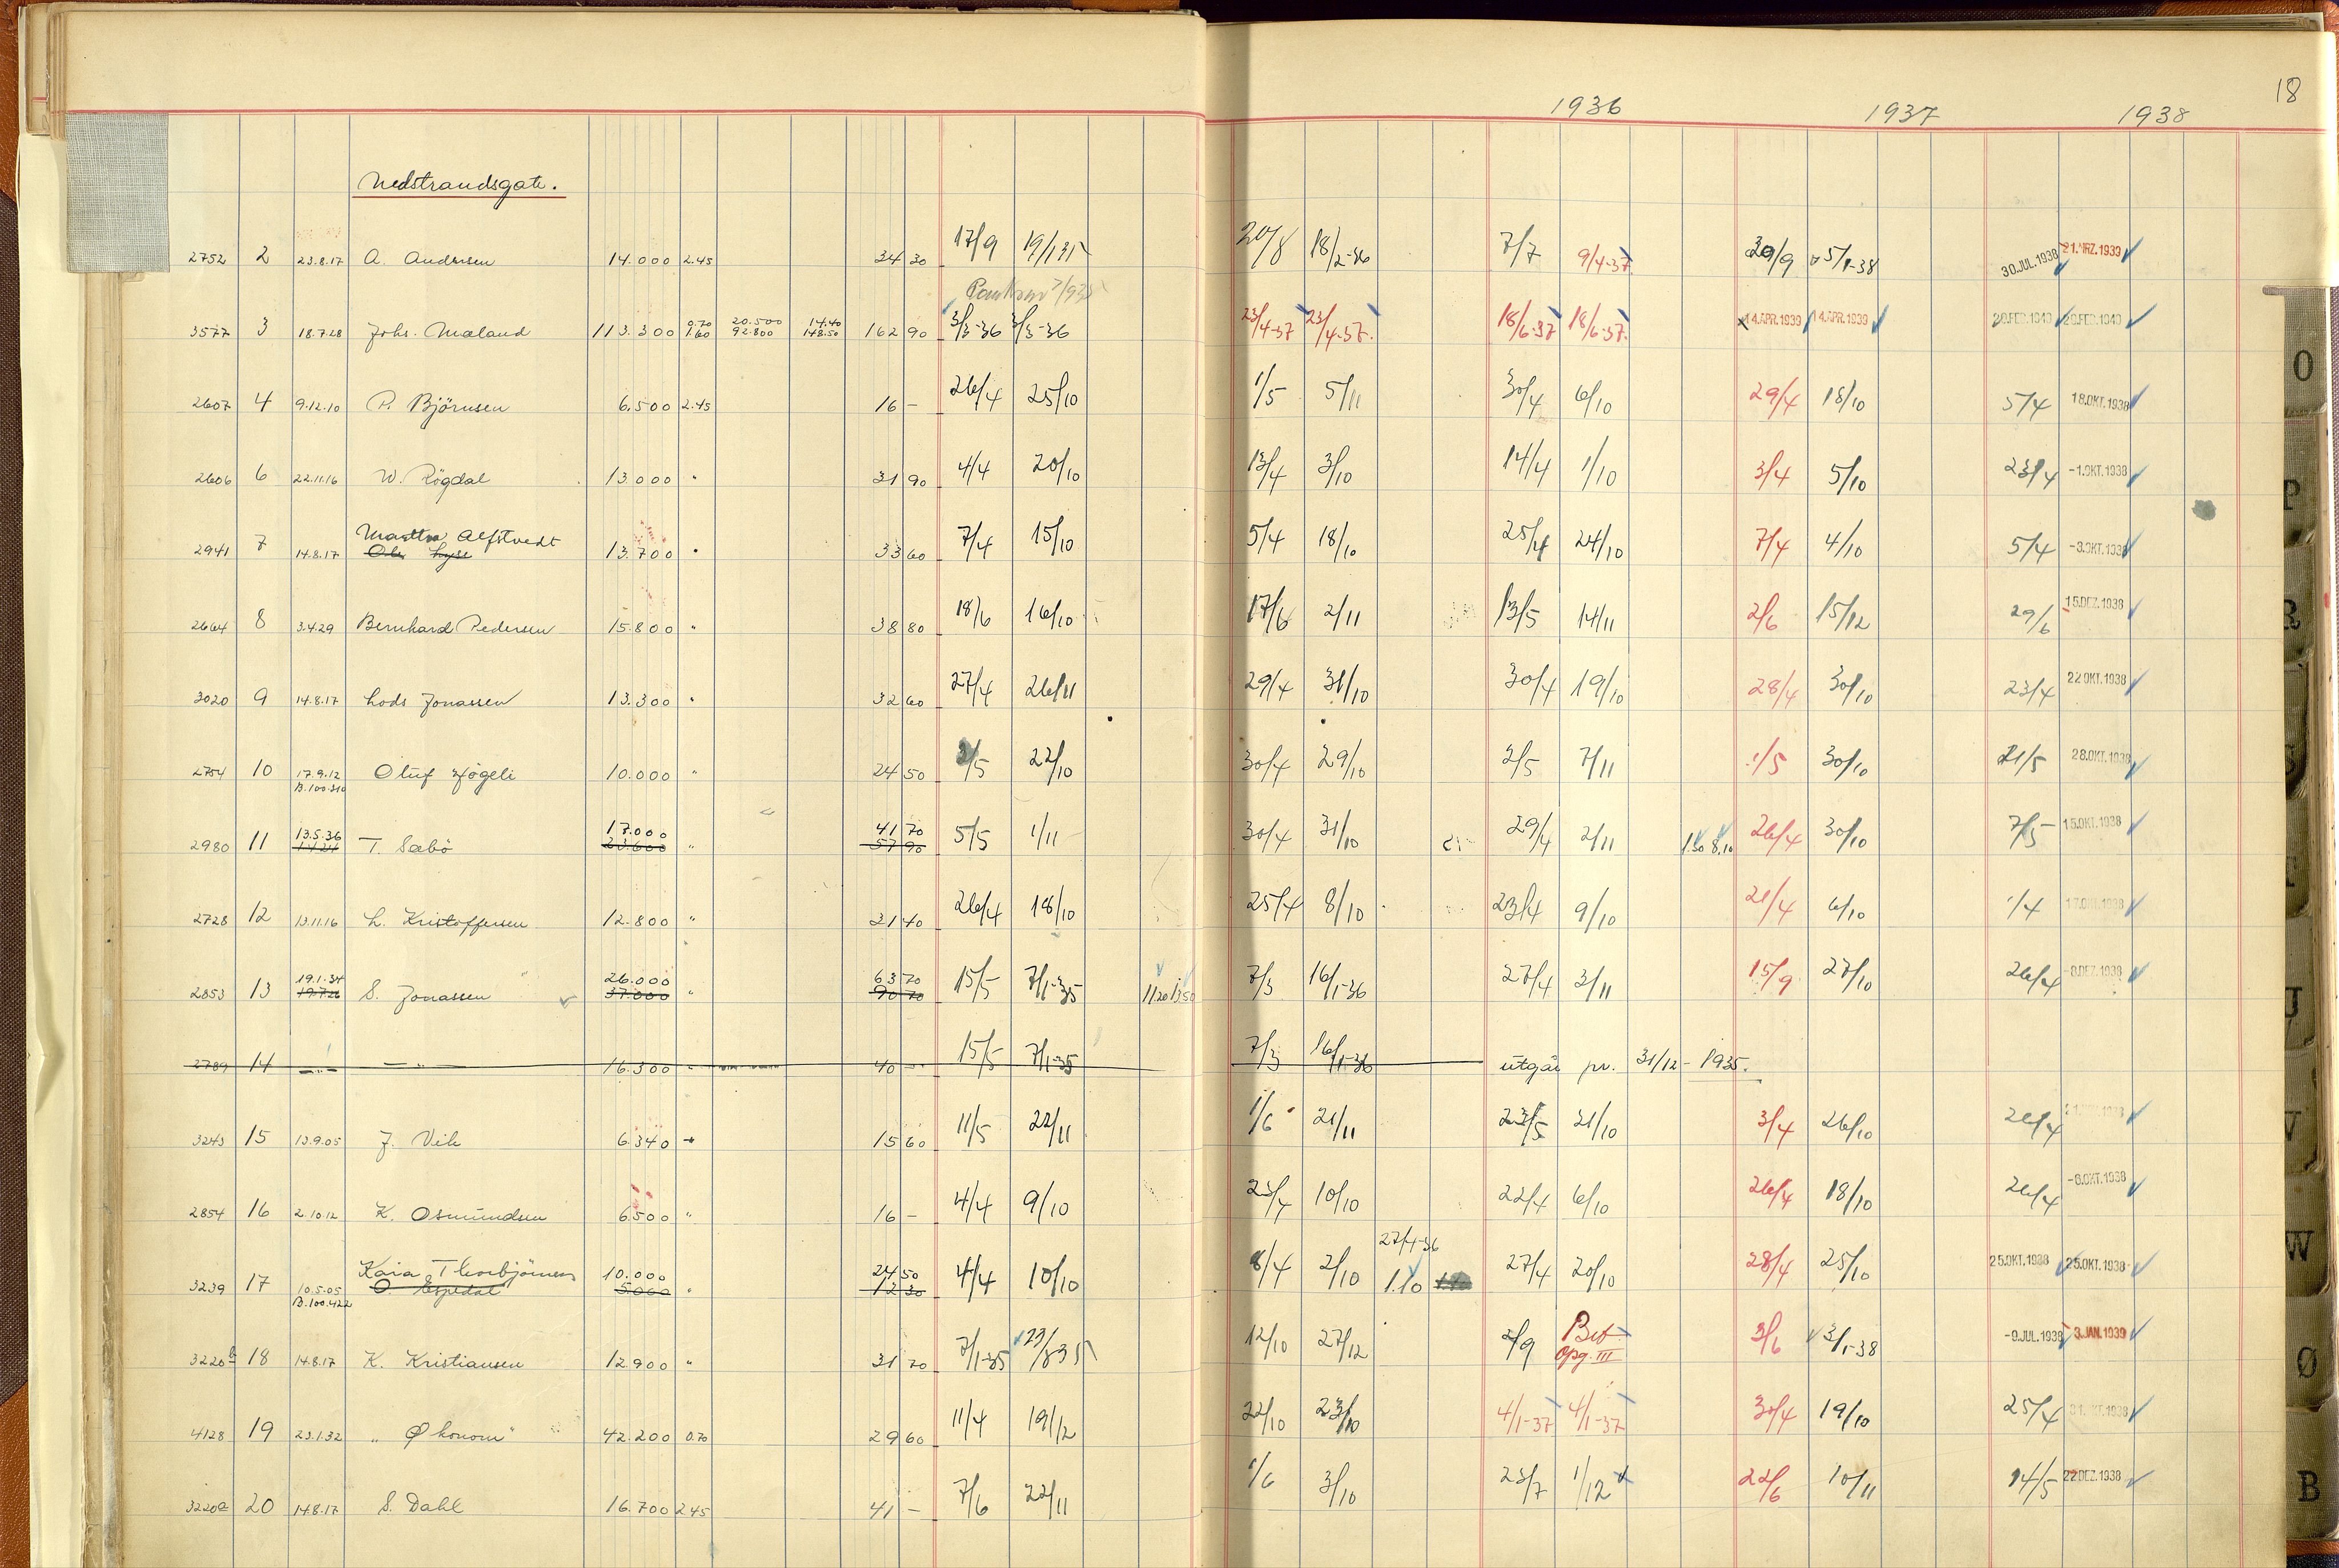 18
1936 1937 1938
Nedstrandsgate.
2752 2 23.8.17 A. Andersen 14.000 2.45 34 30 17/9 19/1 35 20/8 18/2-36 7/7 9/4-37 29/9 5/1-38 30.JUL.1938 21.MRZ.1939
3577 3 18.7.28 Johs. Maland 113.300 0.70 1.60 20.500 92.800 14.40 148.50 162 90 3/3-36 3/3-36 23/4-37 23/4-37. 18/6-37 18/6-37. 14.APR.1939 14.APR.1939 20.FEB.1940 20.FEB.1940
2607 4 9.12.10 P. Björnsen 6.500 2.45 16 - 26/4 25/10 1/5 5/11 30/4 6/10 29/4 18/10 5/4 18.OKT.1938
2606 6 22.11.16 W. Rögdal 13.000 " 31 90 4/4 20/10 13/4 3/10 14/4 1/10 3/4 5/10 23/4 -1.OKT.1938
2941 7 14.8.17 Alfstvedt Ole Lyse 13.700 " 33 60 7/4 15/10 5/4 18/10 25/4 24/10 7/4 4/10 5/4 -3.OKT.1938
2664 8 3.4.29 Bernhard Pedersen 15.800 " 38 80 18/6 16/10 17/6 2/11 13/5 14/11 2/6 15/12 29/6 15.DEZ.1938
3020 9 14.8.17 Lods Jonassen 13.300 " 32 60 27/4 26/11 29/4 31/10 30/4 19/10 28/4 30/10 23/4 22.OKT.1938
2754 10 17.9.12 B.100.310 Oluf 10.000 " 24 50 2/5 22/10 30/4 29/10 2/5 7/11 1/5 30/10 21/5 28.OKT.1938
2980 11 13.5.36 T. Sæbö 17.000 23.600 " 41 70 57 90 5/5 1/11 30/4 31/10 29/4 2/11 1.30 8.10 26/4 30/10 7/5 15.OKT.1938
2728 12 13.11.16 L. Kristoffersen 12.800 " 31 40 26/4 18/10 25/4 8/10 23/4 9/10 21/4 6/10 1/4 17.OKT.1938
2853 13 19.1.34 19.7.26 S. Jonassen 26.000 37.000 " 63 70 90 70 15/5 7/1-35 11 20 13.50 7/3 16/1-36 27/4 2/11 15/9 27/10 26/4 -8.DEZ.1938
2789 14 -"- -"- 16.300 " 40 - 15/5 7/1-35 7/3 16/1-36 utgår pr. 31/12 - 1935.
3243 15 13.9.05 J. Veih 6.340 " 15 60 11/5 22/11 1/6 21/11 23/5 21/10 3/4 26/10 26/4
2854 16 2.10.12 K. Osmundsen 6.500 " 16 - 4/4 9/10 25/4 10/10 22/4 6/10 26/4 18/10 26/4 -8.OKT.1938
3239 17 10.5.05 B.100.422 Kaia Thorbjörnsen O Espedal 10.000 5.000 " 24 50 12 30 4/4 10/10 8/4 2/10 27/4-36 1.10 27/4 20/10 28/4 25/10 25.OKT.1938 25.OKT.1938
3220b 18 14.8.17 K. Kristiansen 12.900 " 31 70 7/1-35 23/8 35 12/10 27/12 2/9 Bet. opg. III 3/6 3/1-38 -9.JUL.1938 3.JAN.1939
4128 19 23.1.32 " Økonom" 42.200 0.70 29 60 11/4 19/12 22/10 23/10 4/1-37 4/1-37 30/4 19/10 25/4
3220a 20 14.8.17 S. Dahl 16.700 2.45 41 - 7/6 22/11 1/6 3/10 23/7 1/12 22/6 10/11 14/5 22.DEZ.1938
O
P
R
S
U
V
W
Ø
B